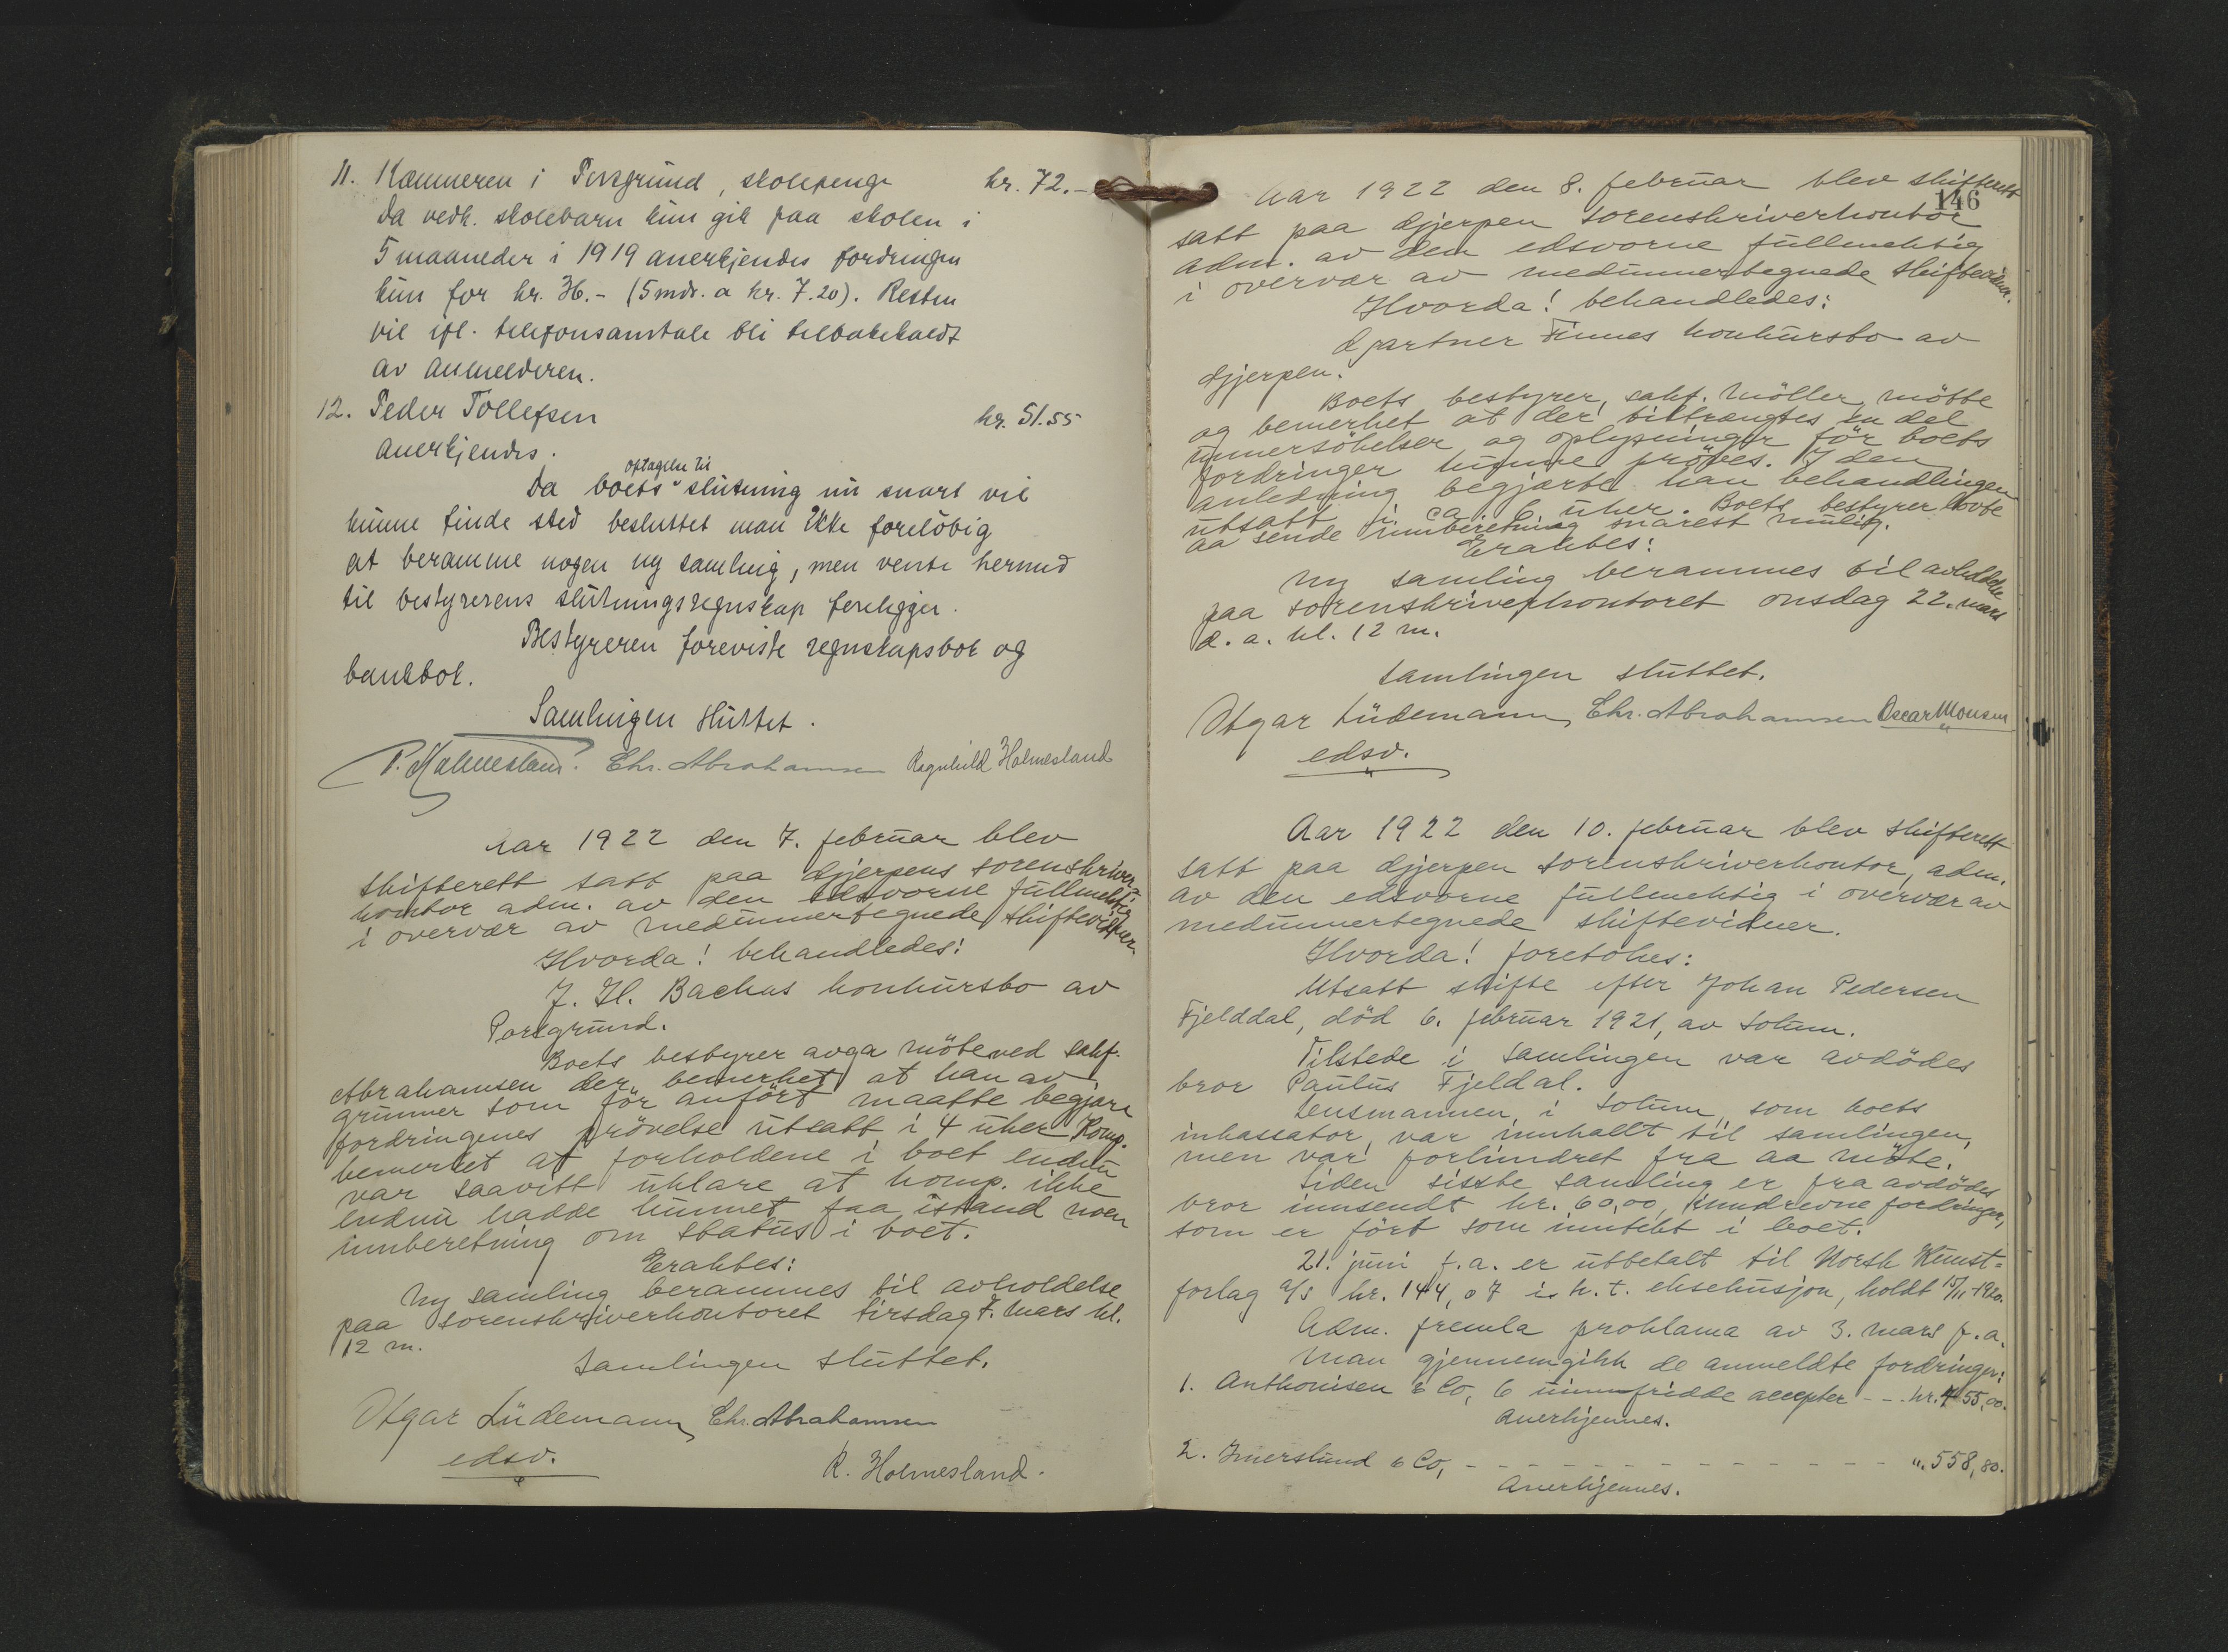 11. Kæmneren i Porsgrund, skolepenge kr. 72.-
Da vedk. skolebarn kun gik paa skolen i
5 maaneder i 1919 anerkjendes fordringen
kun for kr. 36.- (5 mdr. a kr. 7.20). Resten
vil ifl. telefonsamtale bli tilbakekaldt
av anmelderen.
12. Peder Tollefsen kr. 51.55
Anerkjendes.
optagelse til
Da boets slutning nu snart vil
kunne finde sted besluttet man ikke foreløbig
at beramme nogen ny samling, men vente hermed
til bestyrerens slutningsregnskap foreligger.
Bestyreren foreviste regnskapsbok og
bankbok.
Samlingen sluttet.
P. Holmesland. Chr. Abrahamsen Ragnhild Holmesland
Aar 1922 den 7. februar blev
skifterett satt paa Gjerpens sorenskriver-
kontor adm. av den edsvorne fullmektig
i overvær av medunnertegnede skiftevidner
Hvorda! behandledes:
J. H. Backes konkursbo av
Porsgrund.
Boets bestyrer avga møte ved sakf.
Abrahamsen der bemerket at han av
grunner som før anført maatte begjære
fordringenes prøvelse utsatt i 4 uker. Komp.
bemerket at forholdene i boet endnu
var saavitt uklare at komp. ikke
endnu hadde kunnet faa istand noen
innberetning om status i boet.
Eraktes:
Ny samling berammes til avholdelse
paa sorenskriverkontoret tirsdag 7. mars kl.
12 m.
Samlingen sluttet.
Otgar Lüdemann, Chr. Abrahamsen
edsv.
R. Holmesland.
146
Aar 1922 den 8. februar blev skifterett
satt paa Gjerpen sorenskriverkontor
adm. av den edsvorne fullmektig
i overvær av medunnertegnede skiftevidner.
Hvorda! behandledes:
Gartner Finnes konkursbo av
Gjerpen.
Boets bestyrer, sakf. Møller møtte
og bemerket at der tiltrængtes en del
unnersøkelser og oplysninger før boets
fordringer kunne prøves. I den
anledning begjærte han behandlingen
utsatt i ca. 6 uker. Boets bestyrer lovte
aa sende innberetning snarest mulig.
Eraktes:
Ny samling berammes til avholdelse
paa sorenskriverkontoret onsdag 22. mars
d. a. kl. 12 m.
Samlingen sluttet.
Otgar Lüdemann, Chr. Abrahamsen Oscar Monsen
edsv.
Aar 1922 den 10. februar blev skifterett
satt paa Gjerpen sorenskriverkontor, adm.
av den edsvorne fullmektig i overvær av
medunnertegnede skiftevidner.
Hvorda! foretokes:
Utsatt skifte efter Johan Pedersen
Fjelddal, død 6. februar 1921, av Solum.
Tilstede i samlingen var avdødes
bror Paulus Fjeldal.
Lensmannen i Solum, som boets
inkassator, var innkallt til samlingen,
men var forhindret fra aa møte.
Siden sisste samling er fra avdødes
bror innsendt kr. 60,00, inndrevne fordringer,
som er ført som inntekt i boet.
21. juni f.a. er utbetalt til Norsk Kunst=
forlag a/s kr. 144,07 i h. t. eksekusjon, holdt 15/11-1920.
Adm. fremla proklama av 3. mars f.a.
Man gjennemgikk de anmeldte fordringer:
1. Anthonisen & Co, 6 uinnfridde accepter - - kr. 455,00.
Anerkjennes.
2. Imerslund & Co, - - - - - - - - - - - - - - „ 558,80.
Anerkjennes.